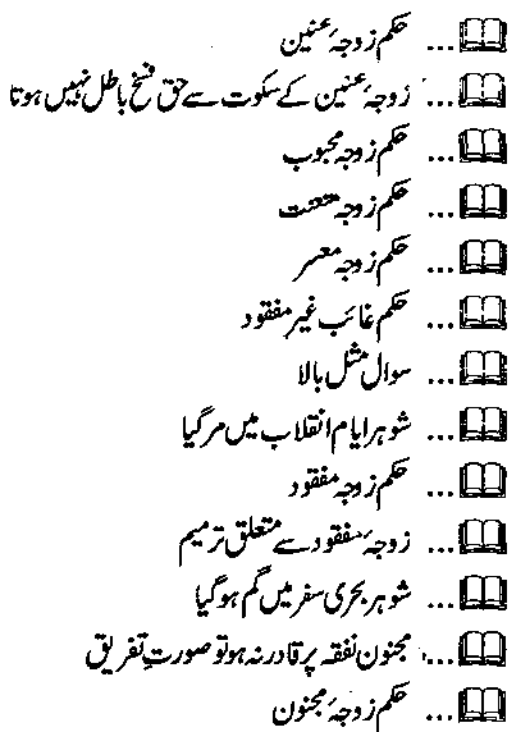 ... حکم زوجۂ عنین
... زوجۂ عنین کے سکوت سے حق فسخ باطل نہیں ہوتا
... حکم زوجہ مجبوب
... حکم زوجہ متعنت
... حکم زوجہ معسر
... حکم غائب غیر مفقود
... سوال مثل بالا
... شوہر ایام انقلاب میں مرگیا
... حکم زوجہ مفقود
... زوجۂ مفقود سے متعلق ترمیم
... شوہر بحری سفر میں گم ہوگیا
... مجنون نفقہ پر قادر نہ ہو تو صورتِ تفریق
... حکم زوجۂ مجنون